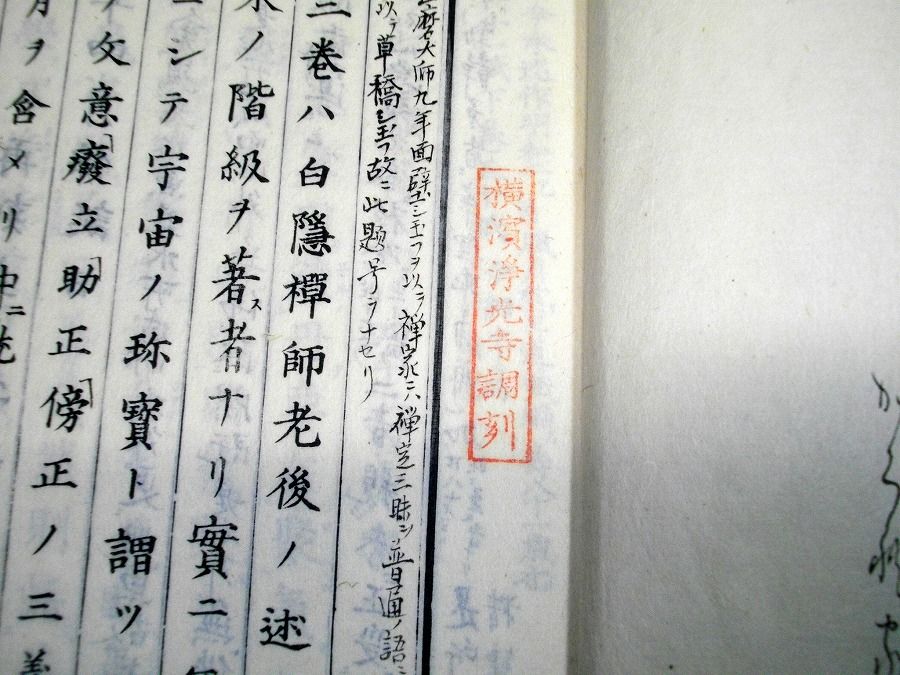 横濱浄光寺調刻
磨大師九年面壁シ玉フヲ以テ禅家ニハ禅定三昧ヲ普通ノ語ニ
以テ草橋ト玉フ故ニ此題号ヲナセリ
二巻ハ白隱禪師老後ノ述
ノ階級ヲ著ス者ナリ實ニ
シテ宇宙ノ珎寶ト謂ツ
文意廢立助正傍正ノ三義
月ヲ含メリ中ニ